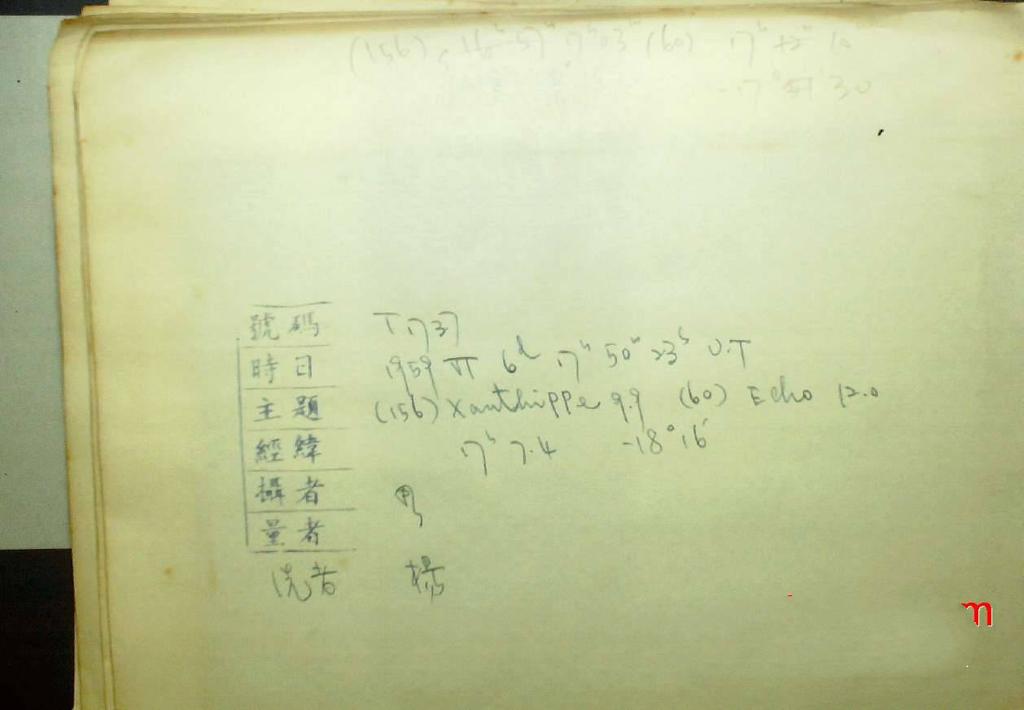 (156) 16ʰ 57ᵐ (60) 17ʰ 12ᵐ 10
-17° 51' 30
號碼 T1737
時日 1959 VI 6ᵈ 17ʰ 50ᵐ 23ˢ U.T
主題 (156) Xanthippe 9.9 (60) Echo 12.0
經緯 17ʰ 7.4 -18° 16'
攝者
量者
洗者 楊
m